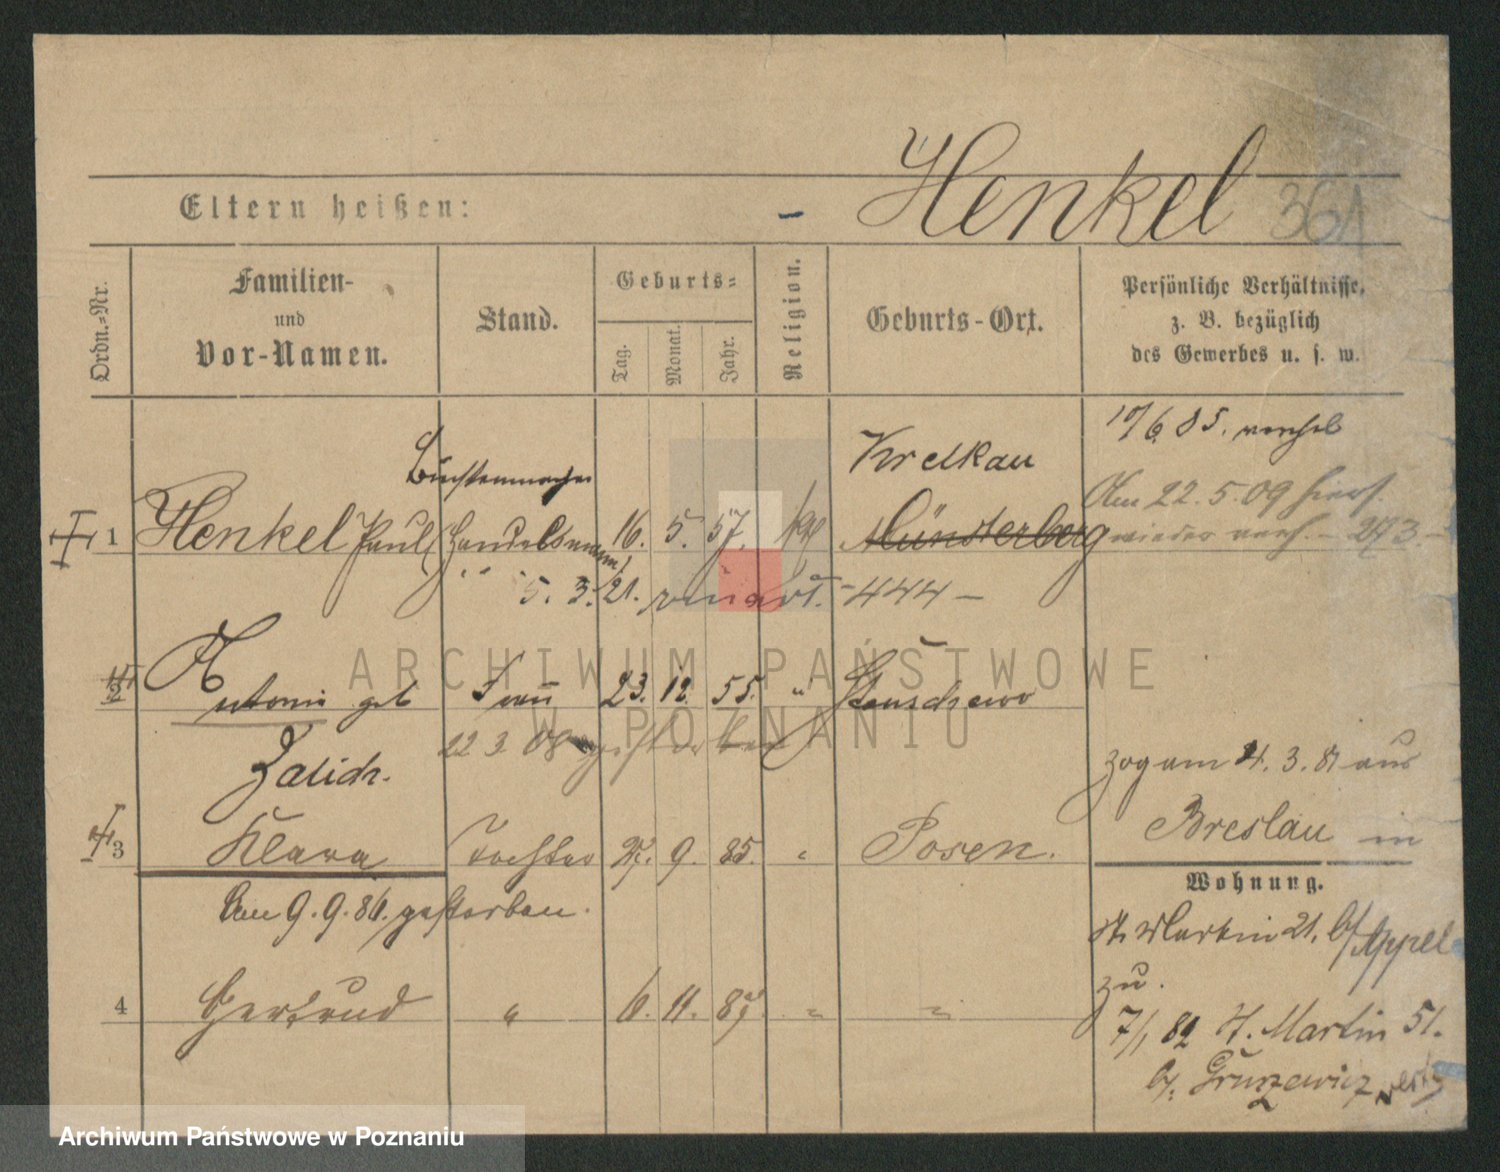 Henkel 361
Eltern heißen: -
Ordn.-Nr.
Familien- und Vor-Namen.
Stand.
Geburts-
Tag. Monat. Jahr.
Religion.
Geburts-Ort.
Persönliche Verhältnisse,
z. B. bezüglich
des Gewerbes u. s. w.
10/6 85. versch
Bürstenmacher
Krelkau
Am 22.5.09 hiers.
1 Henkel Paul Handelsmann 16. 5. 57. kath Münsterberg
wieder verh. - 273 -
5. 3. 21. - 444 -
2 Antonie geb Frau 23. 12. 55. " Stenschewo
22 3 08 gestorben
Zalich.
zog am 4. 3. 81 aus
Breslau in
3 Klara Tochter 27. 9. 85. " Posen.
Am 9. 9. 86. gestorben.
Wohnung.
St. Martin 21. b/Appel
zu.
4 Gertrud " 6. 11. 89. " "
7/1 82 St. Martin 51.
b. Gruszewicz
ARCHIWUM PAŃSTWOWE
W POZNANIU
Archiwum Państwowe w Poznaniu